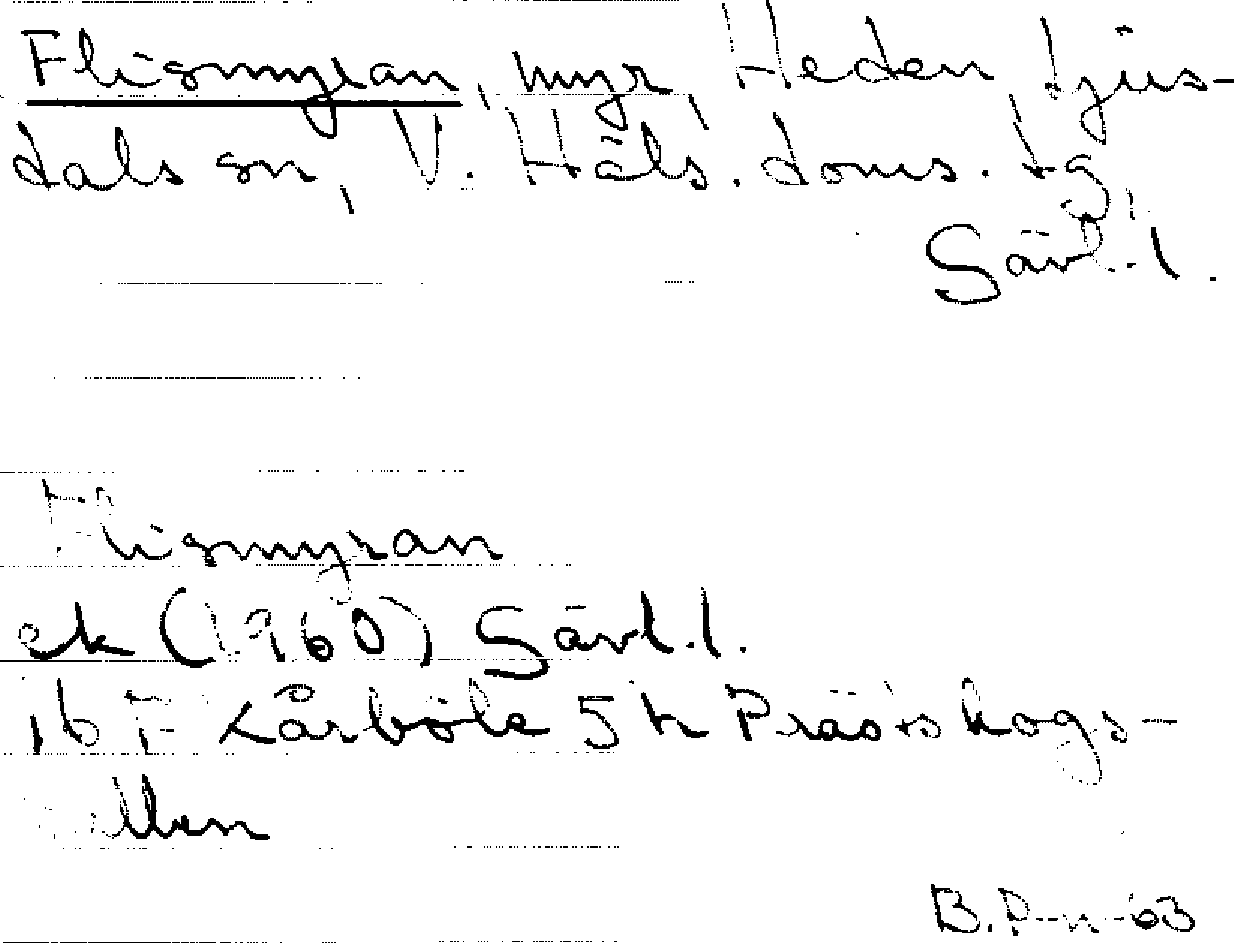 Flismyran, myr, Heden, Ljus-
dals sn, V. Häls. doms. tg
Gävl.l.
Flismyran
ek (1960) Gävl.l.
16 F Kårböle 5 h Prästskogs-
vallen
B.P-n-63